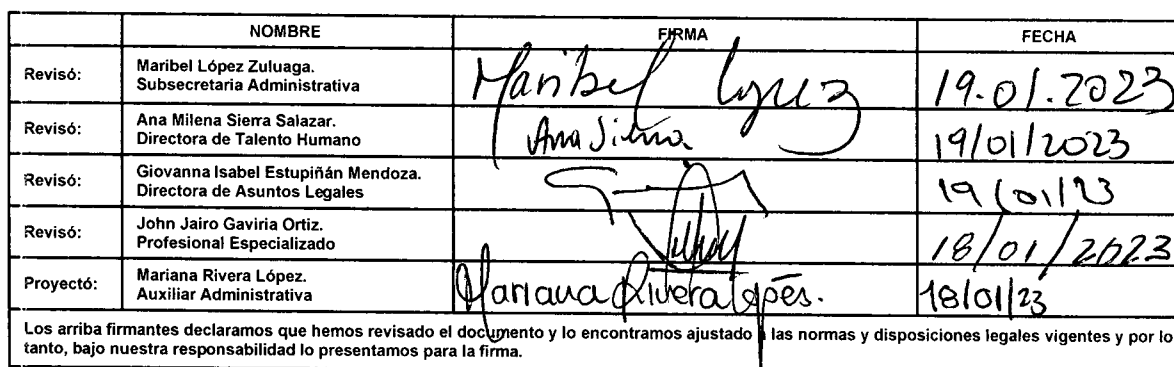 NOMBRE FIRMA FECHA
Revisó: Maribel López Zuluaga.
Subsecretaria Administrativa
Maribel López 19.01.2023
Revisó: Ana Milena Sierra Salazar.
Directora de Talento Humano
Ana Sierra 19/01/2023
Revisó: Giovanna Isabel Estupiñán Mendoza.
Directora de Asuntos Legales
19/01/23
Revisó: John Jairo Gaviria Ortiz.
Profesional Especializado
18/01/2023
Proyectó: Mariana Rivera López.
Auxiliar Administrativa
Mariana Rivera López. 18/01/23
Los arriba firmantes declaramos que hemos revisado el documento y lo encontramos ajustado a las normas y disposiciones legales vigentes y por lo
tanto, bajo nuestra responsabilidad lo presentamos para la firma.